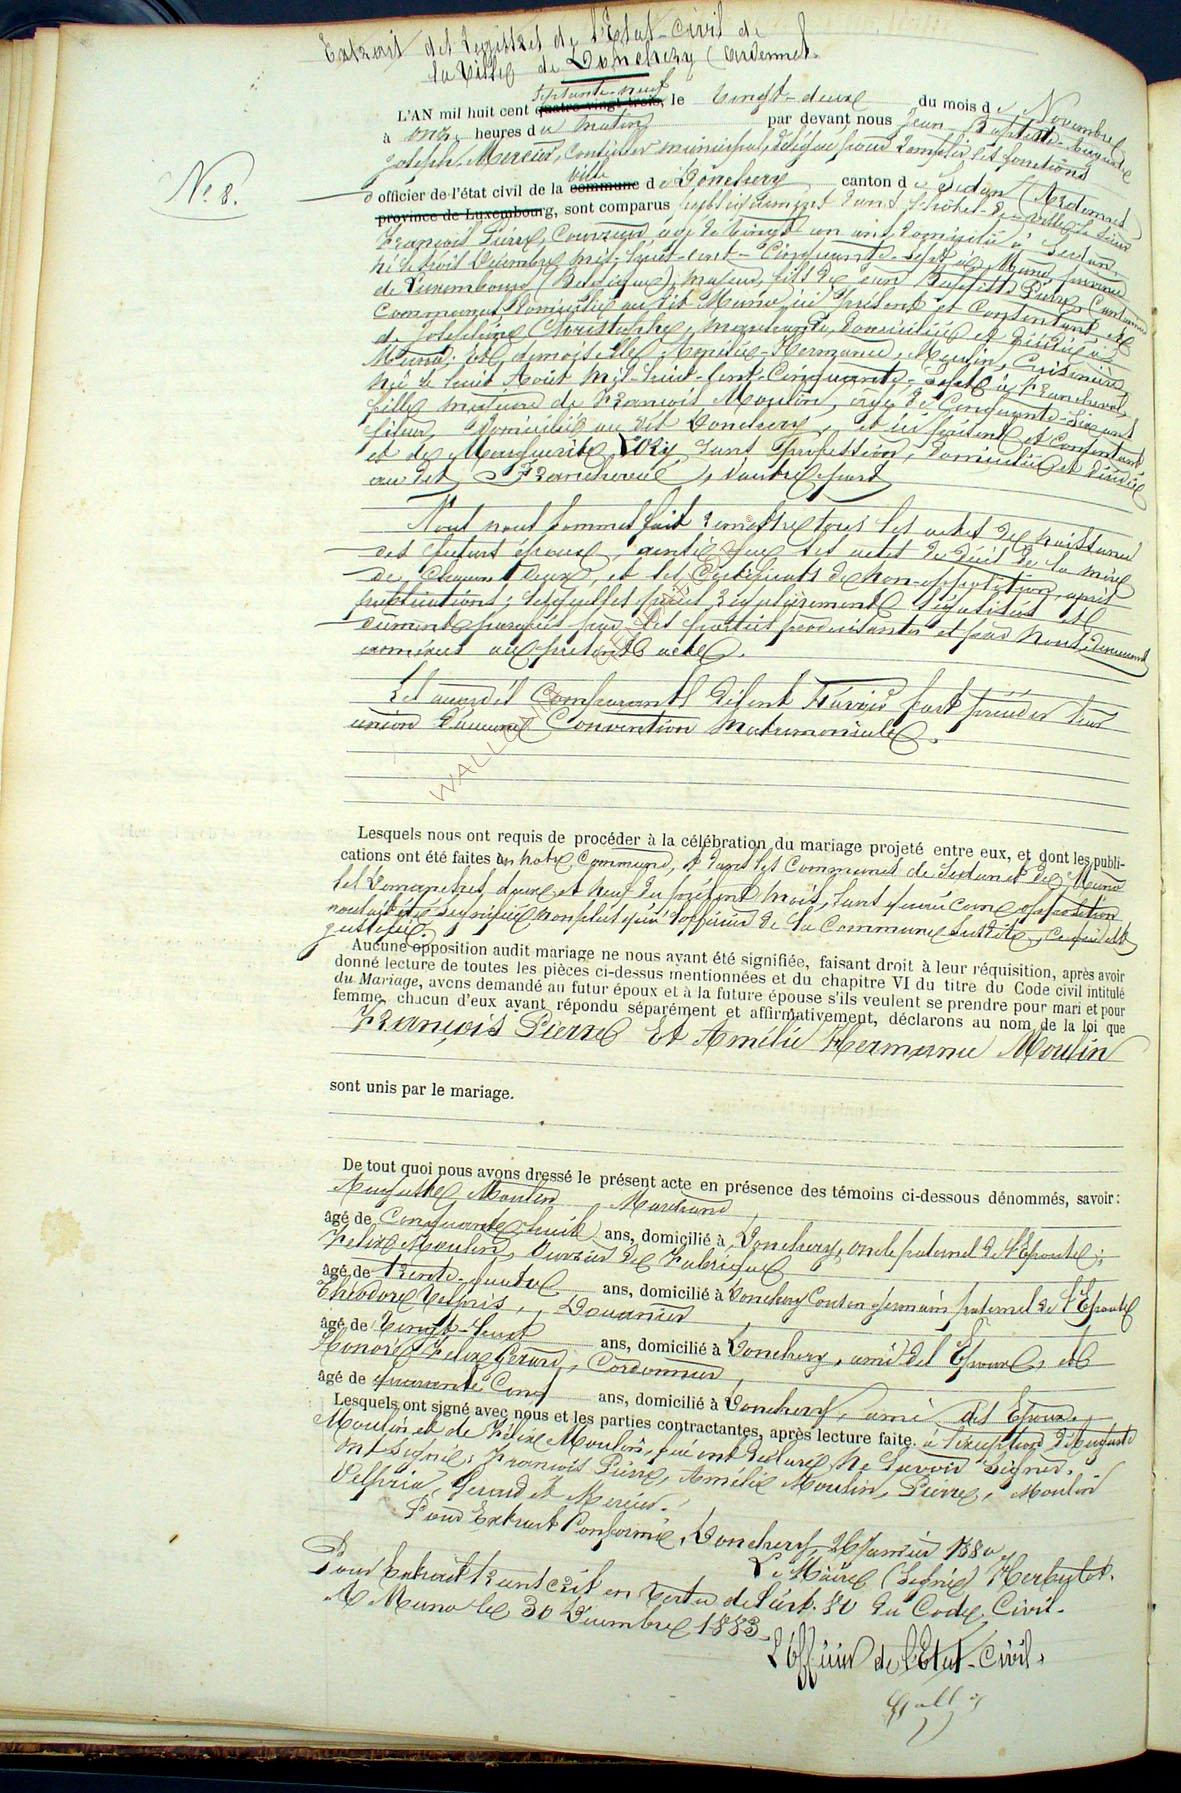 Extrait des Registres de l'Etat-Civil de
la Ville de Donchery (Ardennes)
septante-neuf
L'AN mil huit cent quatre-vingt-trois, le vingt-deux du mois de Novembre
à onze heures du matin par devant nous Jean Baptiste Auguste
Joseph Mercier, Conseiller municipal, délégué pour remplir les fonctions
N° 8.
ville
d'officier de l'état civil de la commune de Donchery canton de Sedan (Ardennes)
province de Luxembourg, sont comparus publiquement dans l'hôtel-de-ville le sieur
François Pierre, Couvreur âgé de vingt un ans, domicilié à Sedan
né le trois Décembre mil-huit-cent-Cinquante-sept à Muno province
de Luxembourg (Belgique), majeur, fils de Jean Baptiste Pierre, Cantonnier
Communal, domicilié au dit Muno, ici présent et Consentant, et
de Joséphine Christophe, domiciliée et décédée à
Muno; et demoiselle Amélie-Hermance, Moulin, Cuisinière
née le huit Août mil-huit-cent-Cinquante-sept à Francheval
fille majeure de François Moulin, âgé de Cinquante-six ans
fileur, domicilié au dit Donchery, et ici présent et Consentant
et de Marguerite, sans Profession, domiciliée et décédée
au dit Francheval, d'autre part
Nous nous sommes fait remettre tous les actes de naissance
des futurs époux, ainsi que les actes de décès de la mère
de chacun d'eux, et les Certificats de non-opposition après
publications; lesquelles pièces régulièrement légalisées et
dûment paraphées par les parties produisantes et par nous demeureront
annexées au présent acte.
Les comparants disent n'avoir fait précéder leur
union d'aucune Convention Matrimoniale.
Lesquels nous ont requis de procéder à la célébration du mariage projeté entre eux, et dont les publi-
cations ont été faites en notre Commune, et dans les Communes de Sedan et de Muno
les Dimanches, deux et neuf du présent mois, sans qu'aucune opposition
nous ait été signifiée non plus qu'à l'officier de la Commune susdite, ce qui est
justifié.
Aucune opposition audit mariage ne nous ayant été signifiée, faisant droit à leur réquisition, après avoir
donné lecture de toutes les pièces ci-dessus mentionnées et du chapitre VI du titre du Code civil intitulé
du Mariage, avons demandé au futur époux et à la future épouse s'ils veulent se prendre pour mari et pour
femme, chacun d'eux ayant répondu séparément et affirmativement, déclarons au nom de la loi que
François Pierre Et Amélie Hermance Moulin
sont unis par le mariage.
De tout quoi nous avons dressé le présent acte en présence des témoins ci-dessous dénommés, savoir:
Auguste Moulin, Marchand,
âgé de Cinquante-huit ans, domicilié à Donchery, oncle paternel de l'Epouse;
Félix Moulin, Ouvrier de Fabrique
âgé de trente-quatre ans, domicilié à Donchery Cousin germain paternel de l'Epouse
Théodore Velpris, Douanier
âgé de vingt-huit ans, domicilié à Donchery, ami de l'Epoux, et
Honoré Félix Gérard, Cordonnier,
âgé de quarante Cinq ans, domicilié à Donchery, ami des Epoux.
Lesquels ont signé avec nous et les parties contractantes, après lecture faite. à l'exception d'Auguste
Moulin et de Félix Moulin, qui ont déclaré ne savoir signer.
Ont signé: François Pierre, Amélie Moulin, Pierre, Moulin
Gérard et Mercier.
Pour Extrait Conforme, Donchery, 26 Janvier 1880
Le Maire (Signé) Herbulot.
Pour Extrait transcrit en vertu de l'art. 80 du Code Civil.
A Muno le 30 Décembre 1883.
L'Officier de l'Etat-Civil.
WALLO